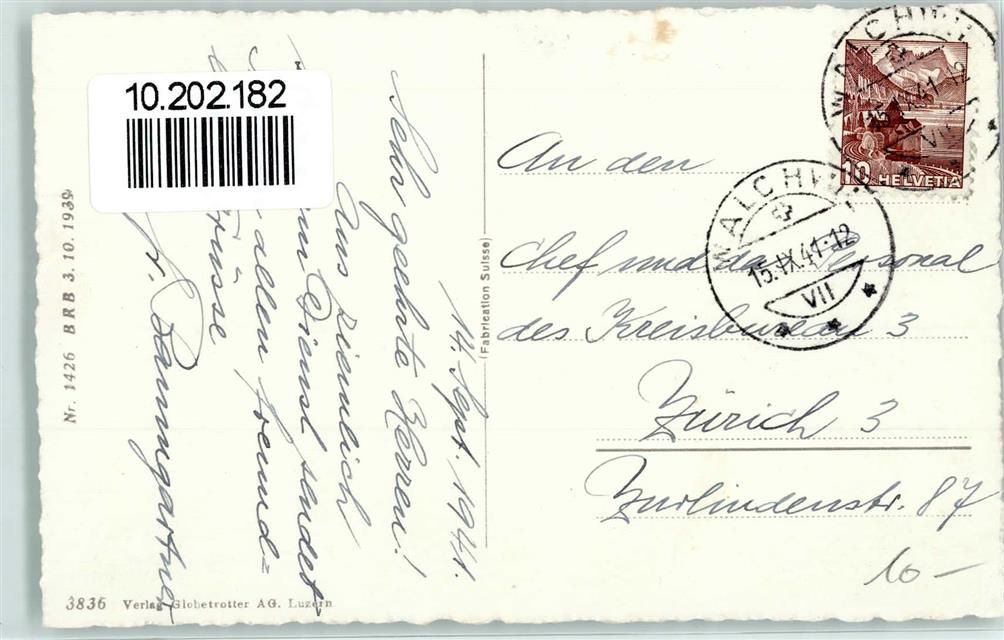 10.202.182
14. Sept. 1941.
Sehr geehrte Herren!
Aus ziemlich
Dienst sendet
allen freund-
Grüsse
Fr. Baumgartner
Nr. 1426 BRB 3. 10. 1939
3836 Verlag Globetrotter AG. Luzern
(Fabrication Suisse)
WALCHWIL
15.IX.41-12
VII
10 HELVETIA
WALCHWIL
15.IX.41-12
VII
An den
Chef und das Personal
des Kreisbureau 3
Zürich 3
Zurlindenstr. 87
10 –